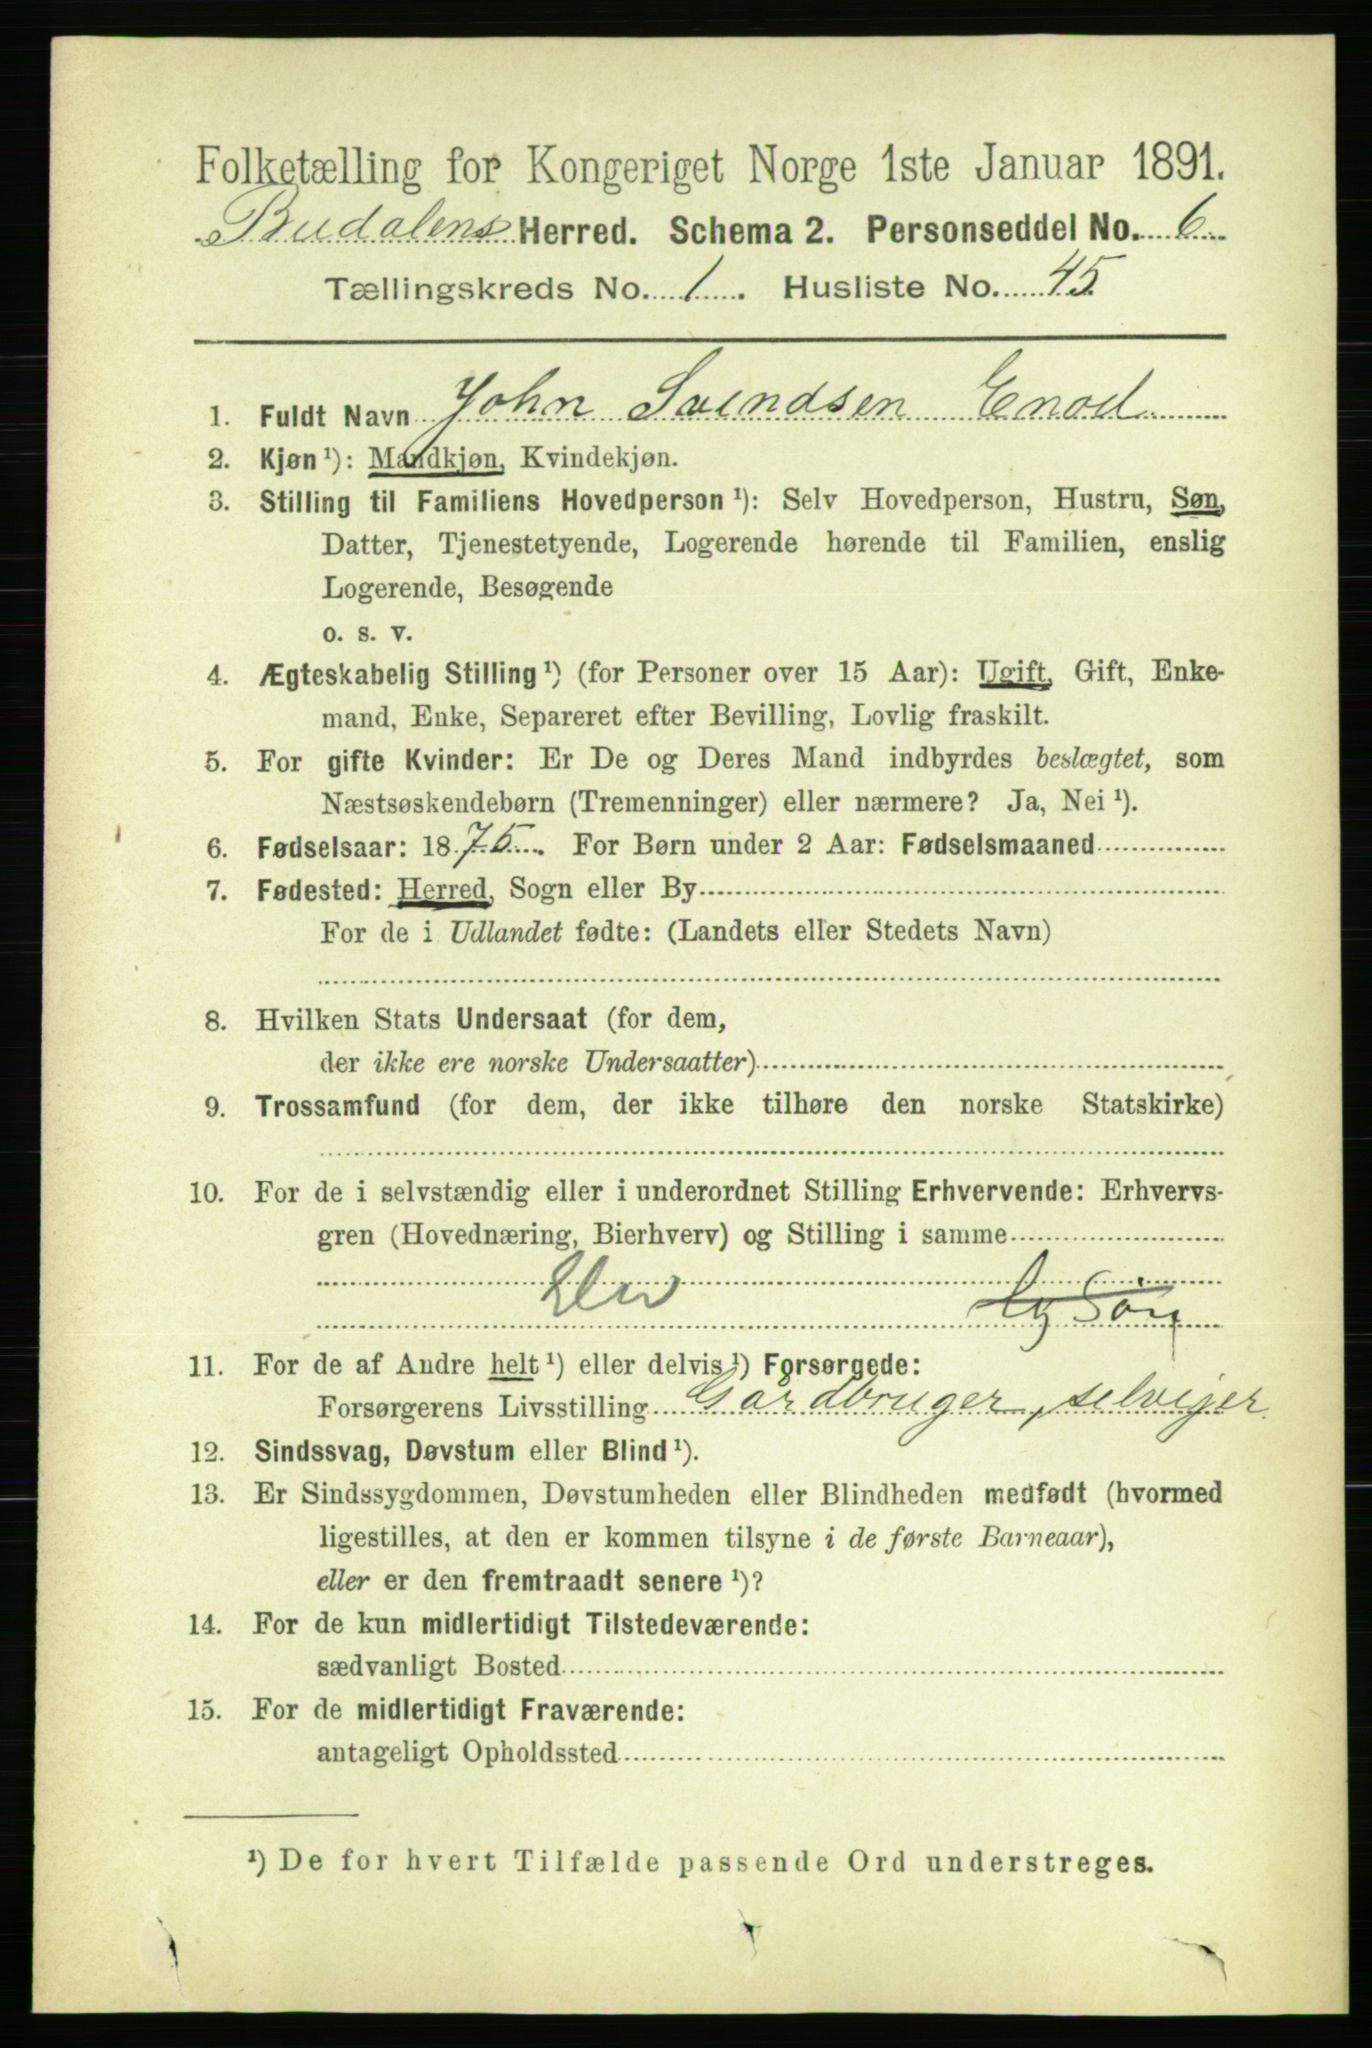 Folketælling for Kongeriget Norge 1ste Januar 1891.
Budalens Herred. Schema 2. Personseddel No. 6
Tællingskreds No. 1. Husliste No. 45
1. Fuldt Navn John Svendsen Enod
2. Kjøn ¹): Mandkjøn, Kvindekjøn.
3. Stilling til Familiens Hovedperson ¹): Selv Hovedperson, Hustru, Søn,
Datter, Tjenestetyende, Logerende hørende til Familien, enslig
Logerende, Besøgende
o. s. v.
4. Ægteskabelig Stilling ¹) (for Personer over 15 Aar): Ugift, Gift, Enke-
mand, Enke, Separeret efter Bevilling, Lovlig fraskilt.
5. For gifte Kvinder: Er De og Deres Mand indbyrdes beslægtet, som
Næstsøskendebørn (Tremenninger) eller nærmere? Ja, Nei ¹).
6. Fødselsaar: 1875. For Børn under 2 Aar: Fødselsmaaned
7. Fødested: Herred, Sogn eller By
For de i Udlandet fødte: (Landets eller Stedets Navn)
8. Hvilken Stats Undersaat (for dem,
der ikke ere norske Undersaatter)
9. Trossamfund (for dem, der ikke tilhøre den norske Statskirke)
10. For de i selvstændig eller i underordnet Stilling Erhvervende: Erhvervs-
gren (Hovednæring, Bierhverv) og Stilling i samme
Elev
11. For de af Andre helt ¹) eller delvis ¹) Forsørgede:
Forsørgerens Livsstilling Gardbruger, selvejer
12. Sindssvag, Døvstum eller Blind ¹).
13. Er Sindssygdommen, Døvstumheden eller Blindheden medfødt (hvormed
ligestilles, at den er kommen tilsyne i de første Barneaar),
eller er den fremtraadt senere ¹)?
14. For de kun midlertidigt Tilstedeværende:
sædvanligt Bosted
15. For de midlertidigt Fraværende:
antageligt Opholdssted
¹) De for hvert Tilfælde passende Ord understreges.